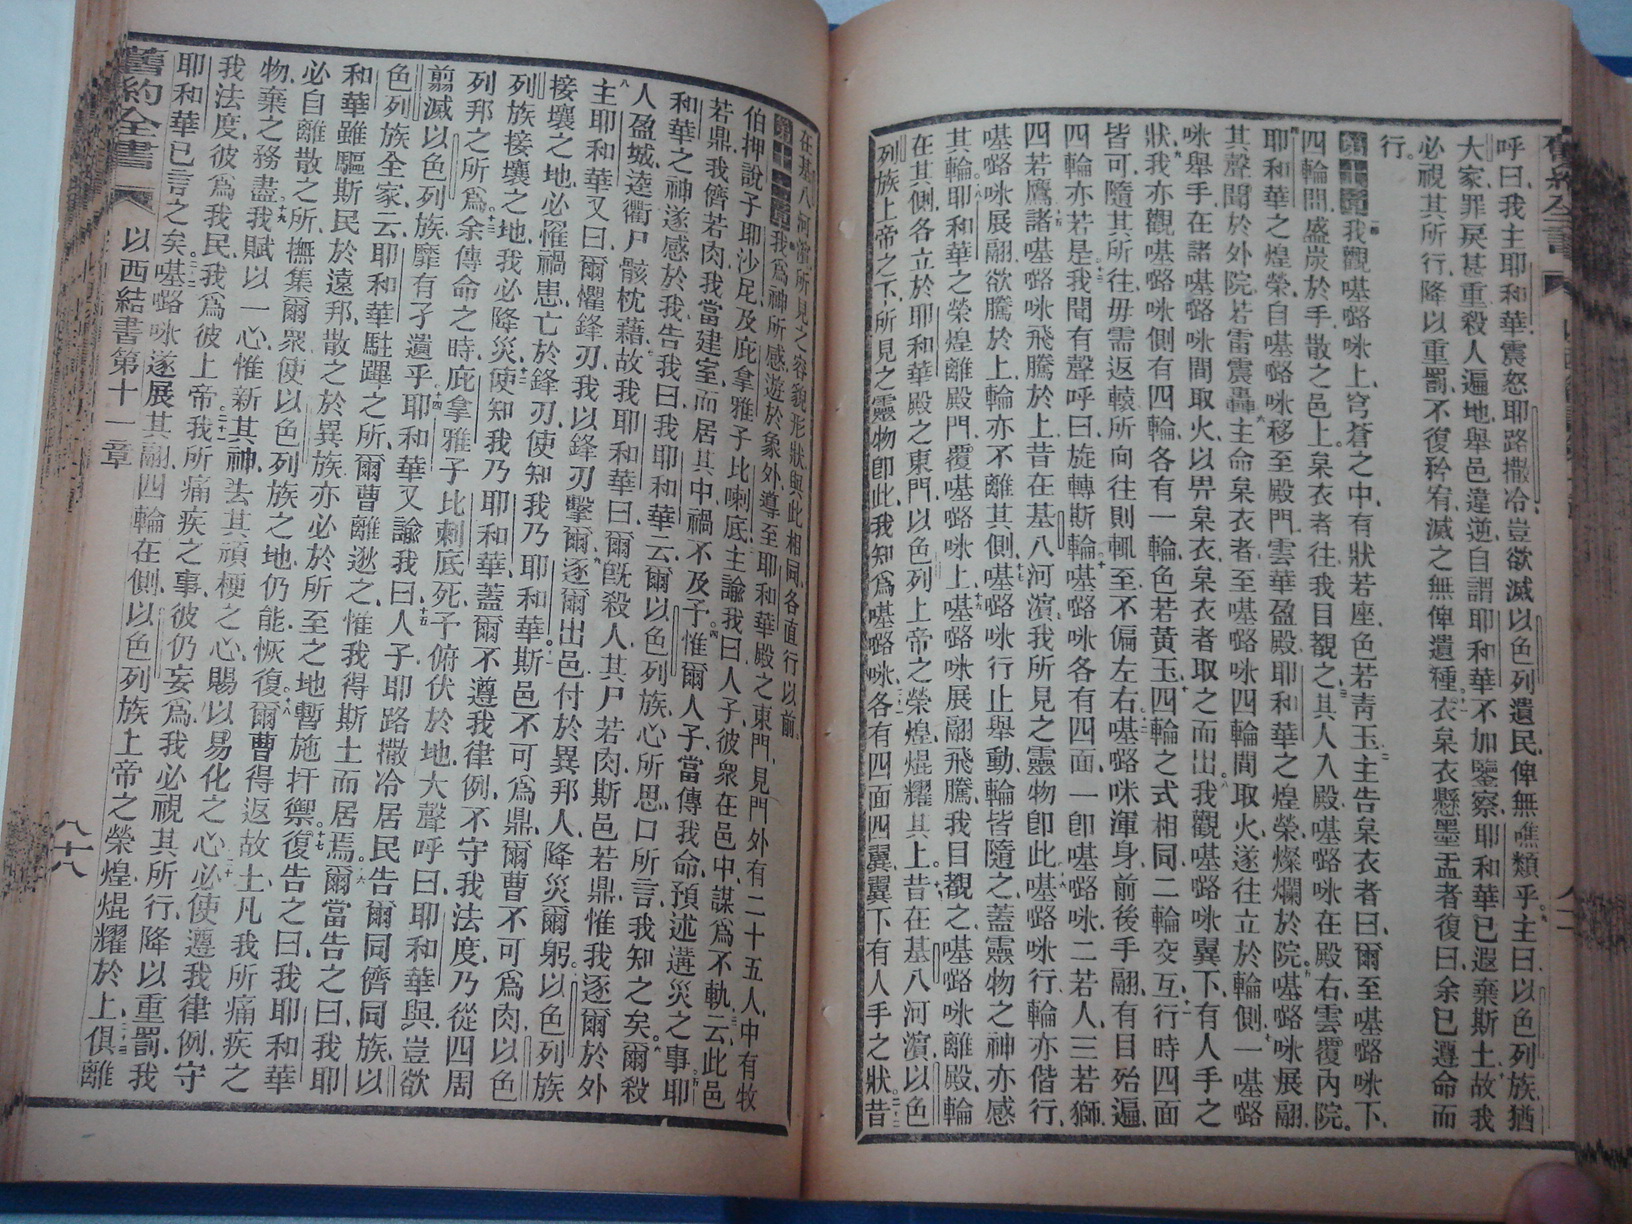 呼曰、我主耶和華震怒耶路撒冷、豈欲滅以色列遺民、俾無噍類乎。主曰、以色列族、猶
大家、罪戾甚重、殺人遍地、舉邑違逆、自謂耶和華不加鑒察、耶和華已遐棄斯土、故我
必視其所行、降以重罰、不復矜宥、滅之無俾遺種、衣枲衣懸墨盂者復曰、余已遵命而
行。
第十章 我觀𠼻㗉咪上、穹蒼之中、有狀若座、色若青玉、主告枲衣者曰、爾至𠼻㗉咪下、
四輪間、盛炭於手、散之邑上、枲衣者往、我目覩之、其人入殿、𠼻㗉咪在殿右、雲覆內院。
耶和華之煌榮、自𠼻㗉咪移至殿門、雲華盈殿、耶和華之煌榮、燦爛於院、𠼻㗉咪展翮、
其聲聞於外院、若雷震轟、主命枲衣者、至𠼻㗉咪四輪間取火、遂往立於輪側、一𠼻㗉
咪舉手、在諸𠼻㗉咪間取火、以畀枲衣、枲衣者取之而出、我觀𠼻㗉咪翼下、有人手之
狀、我亦觀𠼻㗉咪側有四輪、各有一輪、色若黃玉、四輪之式相同、二輪交互、行時四面
皆可、隨其所往、毋需返轅、所向往則輒至、不偏左右、𠼻㗉咪渾身、前後手翮、有目殆遍、
四輪亦若是、我聞有聲呼曰、旋轉斯輪、𠼻㗉咪各有四面、一卽𠼻㗉咪、二若人、三若獅、
四若鷹、諸𠼻㗉咪飛騰於上、昔在基八河濱、我所見之靈物卽此、𠼻㗉咪行、輪亦偕行、
𠼻㗉咪展翮、欲騰於上、輪亦不離其側、𠼻㗉咪行止舉動、輪皆隨之、蓋靈物之神、亦感
其輪、耶和華之榮煌、離殿門、覆𠼻㗉咪上、𠼻㗉咪展翮飛騰、我目覩之、𠼻㗉咪離殿、輪
在其側、各立於耶和華殿之東門、以色列上帝之榮煌、焜耀其上、昔在基八河濱、以色
列族上帝之下、所見之靈物卽此、我知爲𠼻㗉咪、各有四面四翼、翼下有人手之狀、昔
在基八河濱、所見之容貌形狀、與此相同、各直行以前。
第十一章 我爲神所感、遊於象外、導至耶和華殿之東門、見門外有二十五人、中有牧
伯押說子耶沙尼、及庇拿雅子比喇底、主諭我曰、人子、彼衆在邑中、謀爲不軌、云、此邑
若鼎、我儕若肉、我當建室、而居其中、禍不及予、惟爾人子、當傳我命、預述遘災之事、耶
和華之神遂感於我、告我曰、我耶和華云、爾以色列族、心所思、口所言、我知之矣。爾殺
人盈城、逵衢尸骸枕藉、故我耶和華曰、爾旣殺人、其尸若肉、斯邑若鼎、惟我逐爾於外、
主耶和華又曰、爾懼鋒刃、我以鋒刃擊爾、逐爾出邑、付於異邦人、降災爾躬。以色列族
接壤之地、必罹禍患、亡於鋒刃、使知我乃耶和華。斯邑不可爲鼎、爾曹不可爲肉、以色
列族接壤之地、我必降災、使知我乃耶和華、蓋爾不遵我律例、不守我法度、乃從四周
列邦之所爲、余傳命之時、庇拿雅子比喇底死、予俯伏於地、大聲呼曰、耶和華與、豈欲
翦滅以色列族、靡有孑遺乎、耶和華又諭我曰、人子、耶路撒冷居民、告爾同儕同族、以
色列族全家云、耶和華駐蹕之所、爾曹離逖之、惟我得斯土而居焉、爾當告之曰、我耶
和華雖驅斯民於遠邦、散之於異族、亦必於所至之地、暫施扞禦、復告之曰、我耶和華
必自離散之所、撫集爾衆、使以色列族之地、仍能恢復、爾曹得返故土、凡我所痛疾之
物、棄之務盡、我賦以一心、惟新其神、去其頑梗之心、賜以易化之心、必使遵我律例、守
我法度、彼爲我民、我爲彼上帝、我所痛疾之事、彼仍妄爲、我必視其所行、降以重罰、我
耶和華已言之矣。𠼻㗉咪遂展其翮、四輪在側、以色列族上帝之榮煌、焜耀於上、俱離
舊約全書 以西結書第十一章 八十八